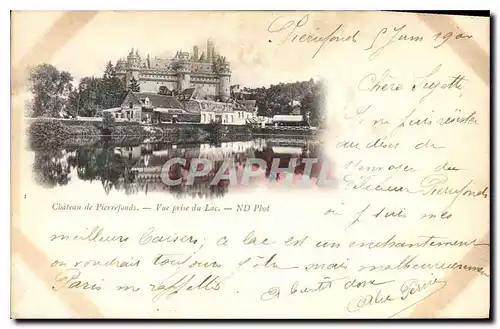 Pierrefond 5 Juin 190
Chère Suzette
Je ne puis résister
au désir de
t'envoyer du
Pierrefond
où je suis mes
meilleurs baisers, ce lac est un enchantement
on voudrait toujours être mais malheureusement
Paris me rappelle. A bientôt donc
Château de Pierrefonds. — Vue prise du Lac. — ND Phot
CPArama.com